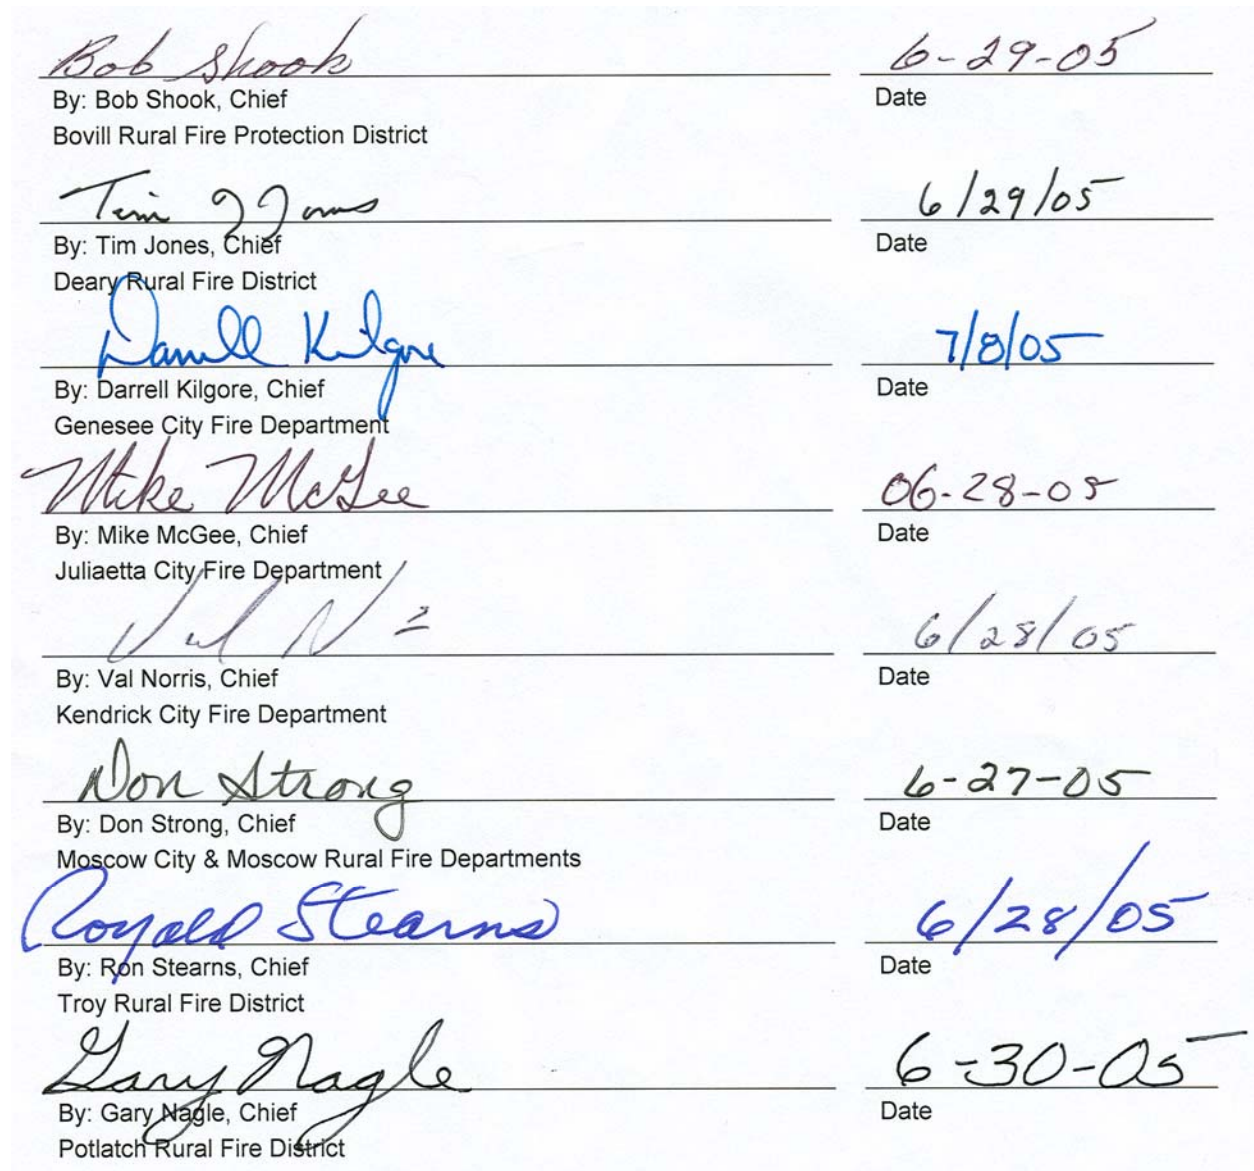 Bob Shook 6-29-05
By: Bob Shook, Chief Date
Bovill Rural Fire Protection District
Tim J Jones 6/29/05
By: Tim Jones, Chief Date
Deary Rural Fire District
Darrell Kilgore 7/8/05
By: Darrell Kilgore, Chief Date
Genesee City Fire Department
Mike McGee 06-28-05
By: Mike McGee, Chief Date
Juliaetta City Fire Department
Val N 6/28/05
By: Val Norris, Chief Date
Kendrick City Fire Department
Don Strong 6-27-05
By: Don Strong, Chief Date
Moscow City & Moscow Rural Fire Departments
Ronald Stearns 6/28/05
By: Ron Stearns, Chief Date
Troy Rural Fire District
Gary Nagle 6-30-05
By: Gary Nagle, Chief Date
Potlatch Rural Fire District